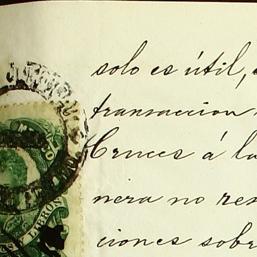 solo es útil,
transaccion
Cruces á la
nera no res
ciones sobre